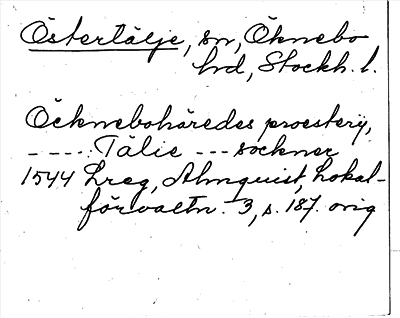 Östertälje, sn, Öknebo
hd, Stockh. l.
Öcknebohäredes proesterij,
----- Tälie --- sockner
1544 Lreg, Almquist, Lokal-
förvaltn. 3, s. 187. orig